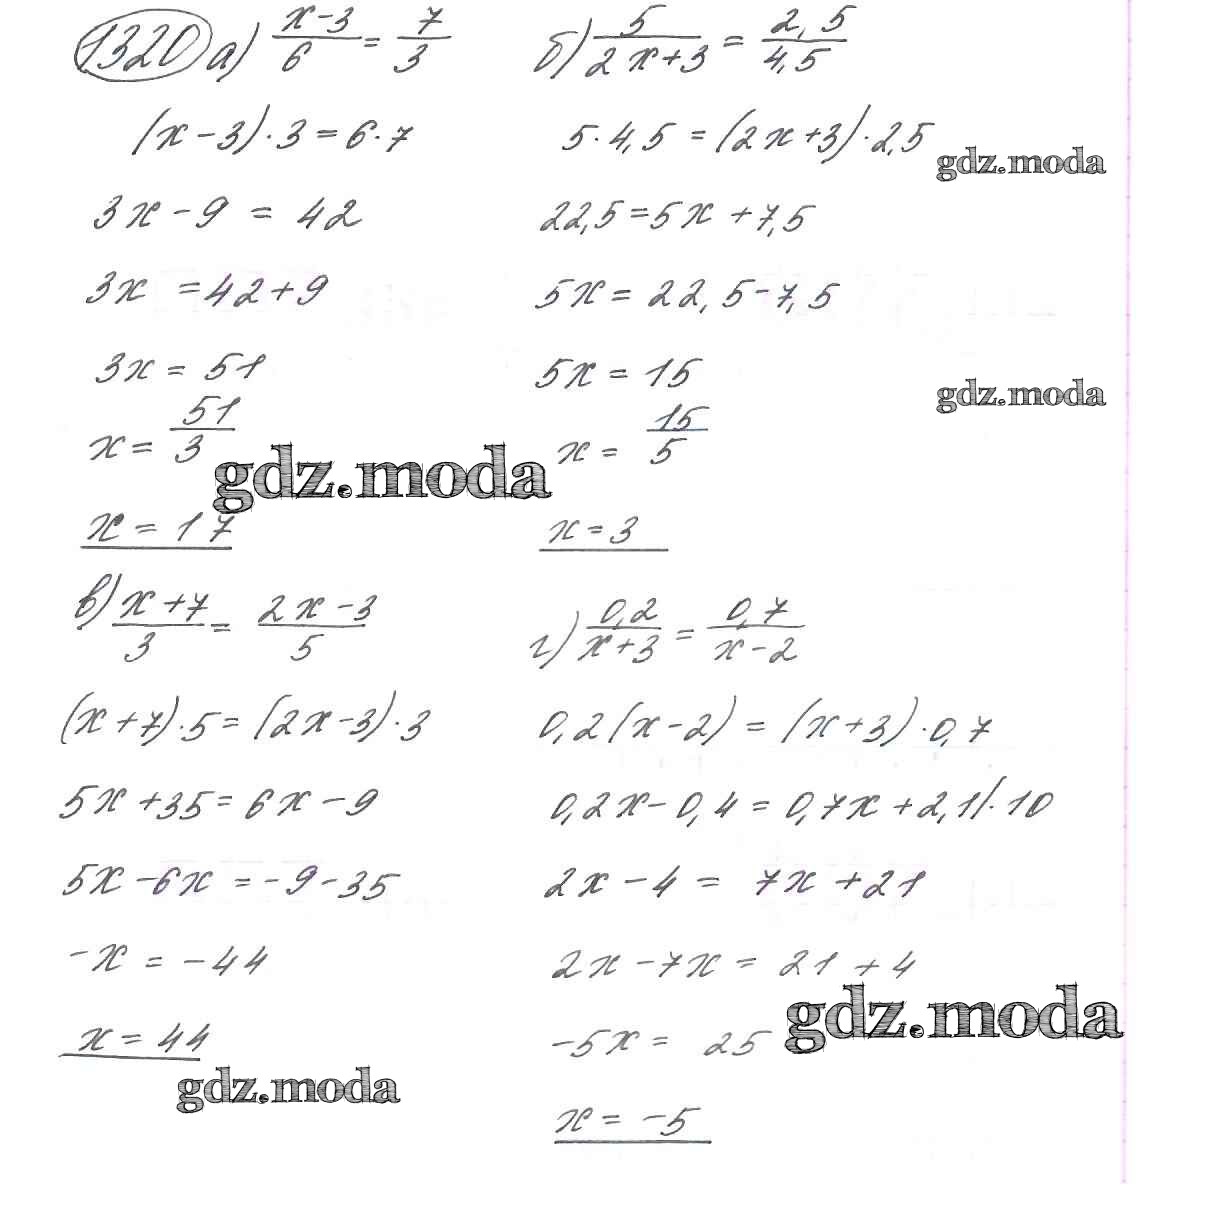 1320 а) (x-3)/6 = 7/3
(x-3)·3=6·7
3x-9 = 42
3x =42+9
3x = 51
x= 51/3
x = 17
б) 5/(2x+3) = 2,5/4,5
5·4,5 = (2x+3)·2,5
22,5=5x+7,5
5x = 22,5-7,5
5x = 15
x = 15/5
x = 3
в) (x+7)/3 = (2x-3)/5
(x+7)·5=(2x-3)·3
5x+35=6x-9
5x-6x =-9-35
-x = -44
x = 44
г) 0,2/(x+3) = 0,7/(x-2)
0,2(x-2) = (x+3)·0,7
0,2x-0,4=0,7x+2,1/·10
2x-4 = 7x+21
2x-7x = 21+4
-5x = 25
x = -5
gdz.moda
gdz.moda
gdz.moda
gdz.moda
gdz.moda